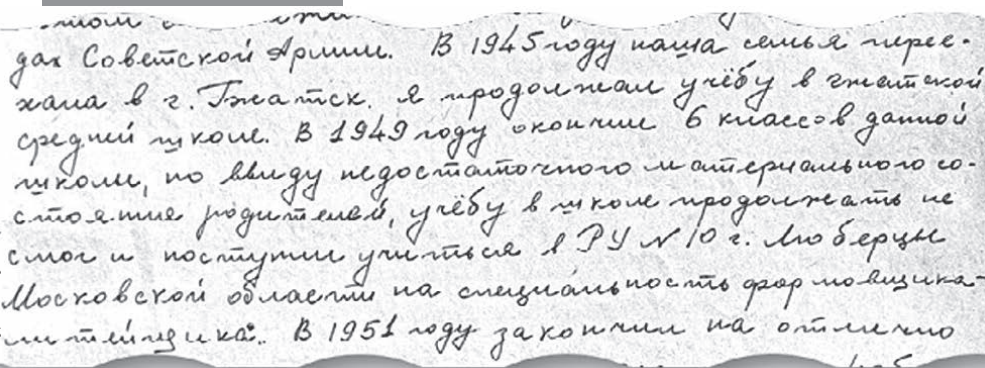 дах Советской Армии. В 1945 году наша семья перее-
хала в г. Гжатск. Я продолжал учёбу в гжатской
средней школе. В 1949 году окончил 6 классов данной
школы, но ввиду недостаточного материального со-
стояния родителей, учёбу в школе продолжать не
смог и поступил учиться в РУ N 10 г. Люберцы
Московской области на специальность формовщика-
литейщика. В 1951 году закончил на отлично